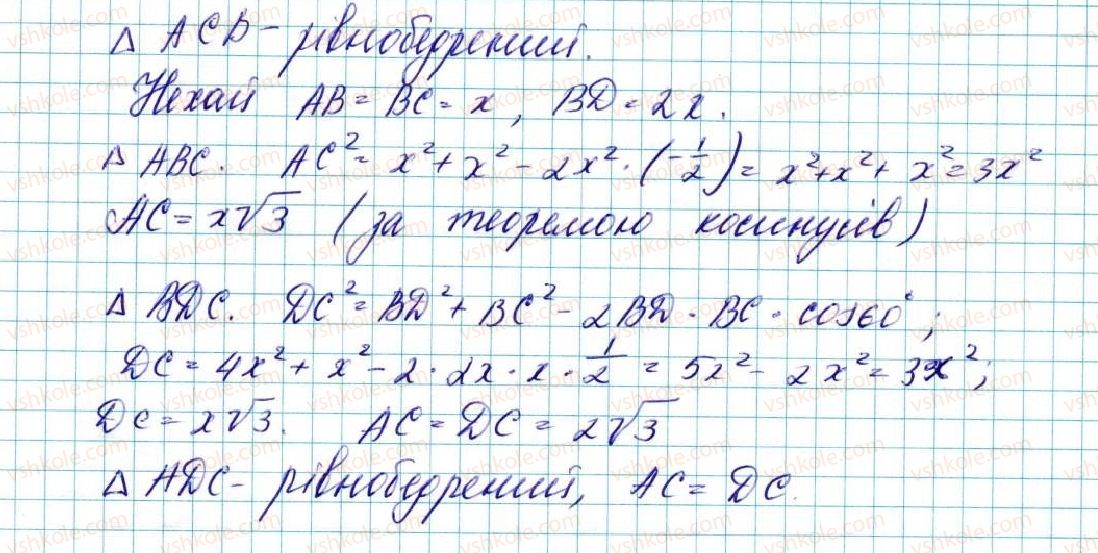 Δ ACD - рівнобедрений.
Нехай AB = BC = x, BD = 2x.
Δ ABC. AC² = x² + x² - 2x² · (-1/2) = x² + x² + x² = 3x²
AC = x√3 (за теоремою косинусів)
Δ BDC. DC² = BD² + BC² - 2BD · BC · cos60°;
DC = 4x² + x² - 2 · 2x · x · 1/2 = 5x² - 2x² = 3x²;
DC = x√3. AC = DC = 2√3
Δ ADC - рівнобедрений, AC = DC.